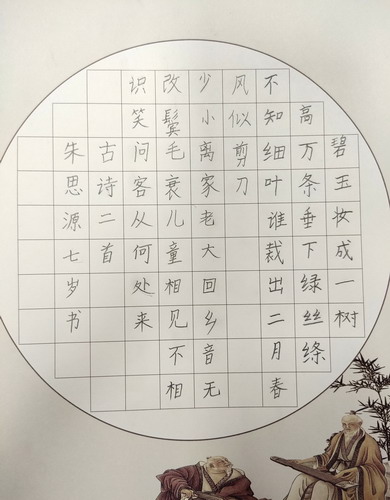 碧玉妆成一树
高万条垂下绿丝绦
不知细叶谁裁出二月春
风似剪刀
少小离家老大回乡音无
改鬓毛衰儿童相见不相
识笑问客从何处来
古诗二首
朱思源七岁书